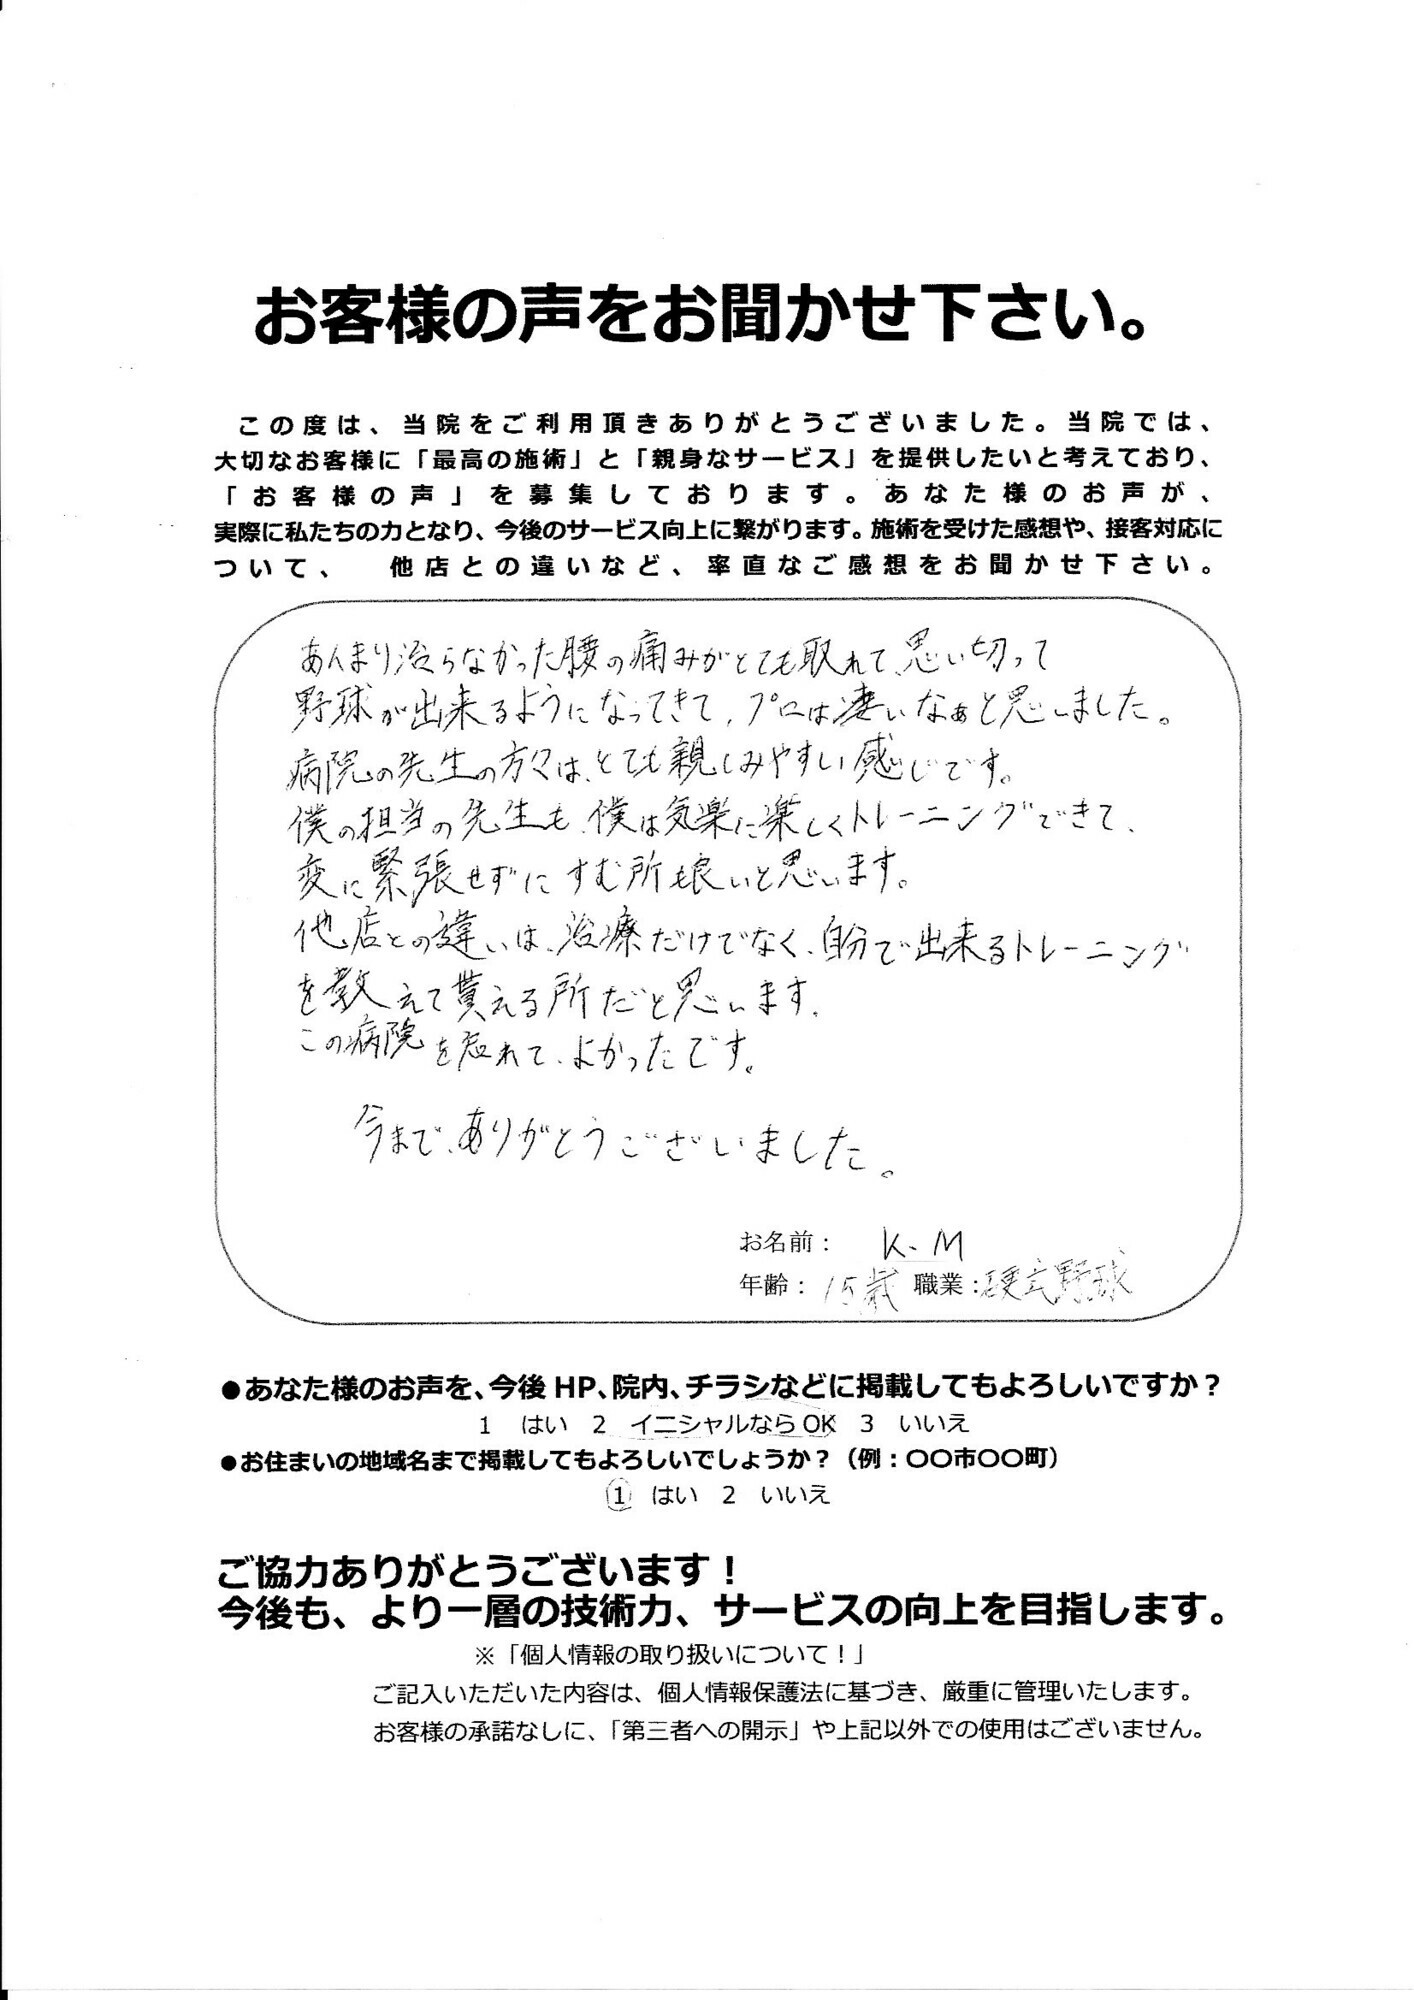 お客様の声をお聞かせ下さい。
この度は、当院をご利用頂きありがとうございました。当院では、
大切なお客様に「最高の施術」と「親身なサービス」を提供したいと考えており、
「お客様の声」を募集しております。あなた様のお声が、
実際に私たちの力となり、今後のサービス向上に繋がります。施術を受けた感想や、接客対応に
ついて、　他店との違いなど、率直なご感想をお聞かせ下さい。
あんまり治らなかった腰の痛みがとても取れて、思い切って
野球が出来るようになってきて、プロは凄いなぁと思いました。
病院の先生の方々は、とても親しみやすい感じです。
僕の担当の先生も、僕は気楽に楽しくトレーニングできて、
変に緊張せずにすむ所も良いと思います。
他店との違いは、治療だけでなく、自分で出来るトレーニング
を教えて貰える所だと思います。
この病院を忘れて、よかったです。
今まで、ありがとうございました。
お名前： K.M
年齢： 15歳 職業：硬式野球
●あなた様のお声を、今後 HP、院内、チラシなどに掲載してもよろしいですか？
1　はい　2　イニシャルなら OK　3　いいえ
●お住まいの地域名まで掲載してもよろしいでしょうか？（例：〇〇市〇〇町）
1　はい　2　いいえ
ご協力ありがとうございます！
今後も、より一層の技術力、サービスの向上を目指します。
※「個人情報の取り扱いについて！」
ご記入いただいた内容は、個人情報保護法に基づき、厳重に管理いたします。
お客様の承諾なしに、「第三者への開示」や上記以外での使用はございません。